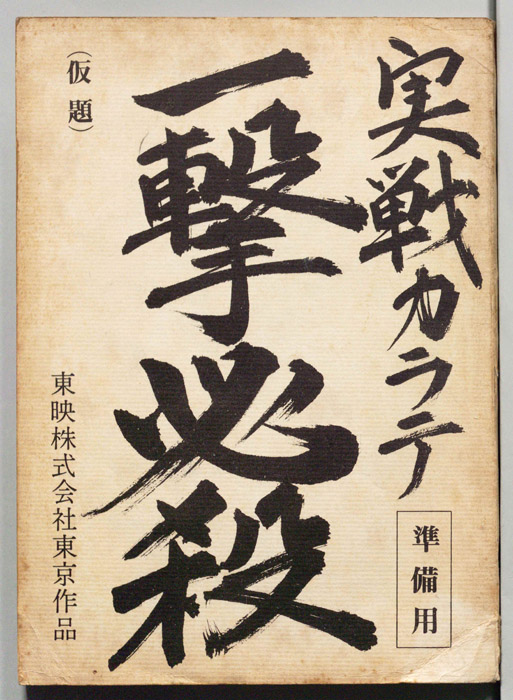 実戦カラテ
準備用
一撃必殺
（仮題）
東映株式会社東京作品